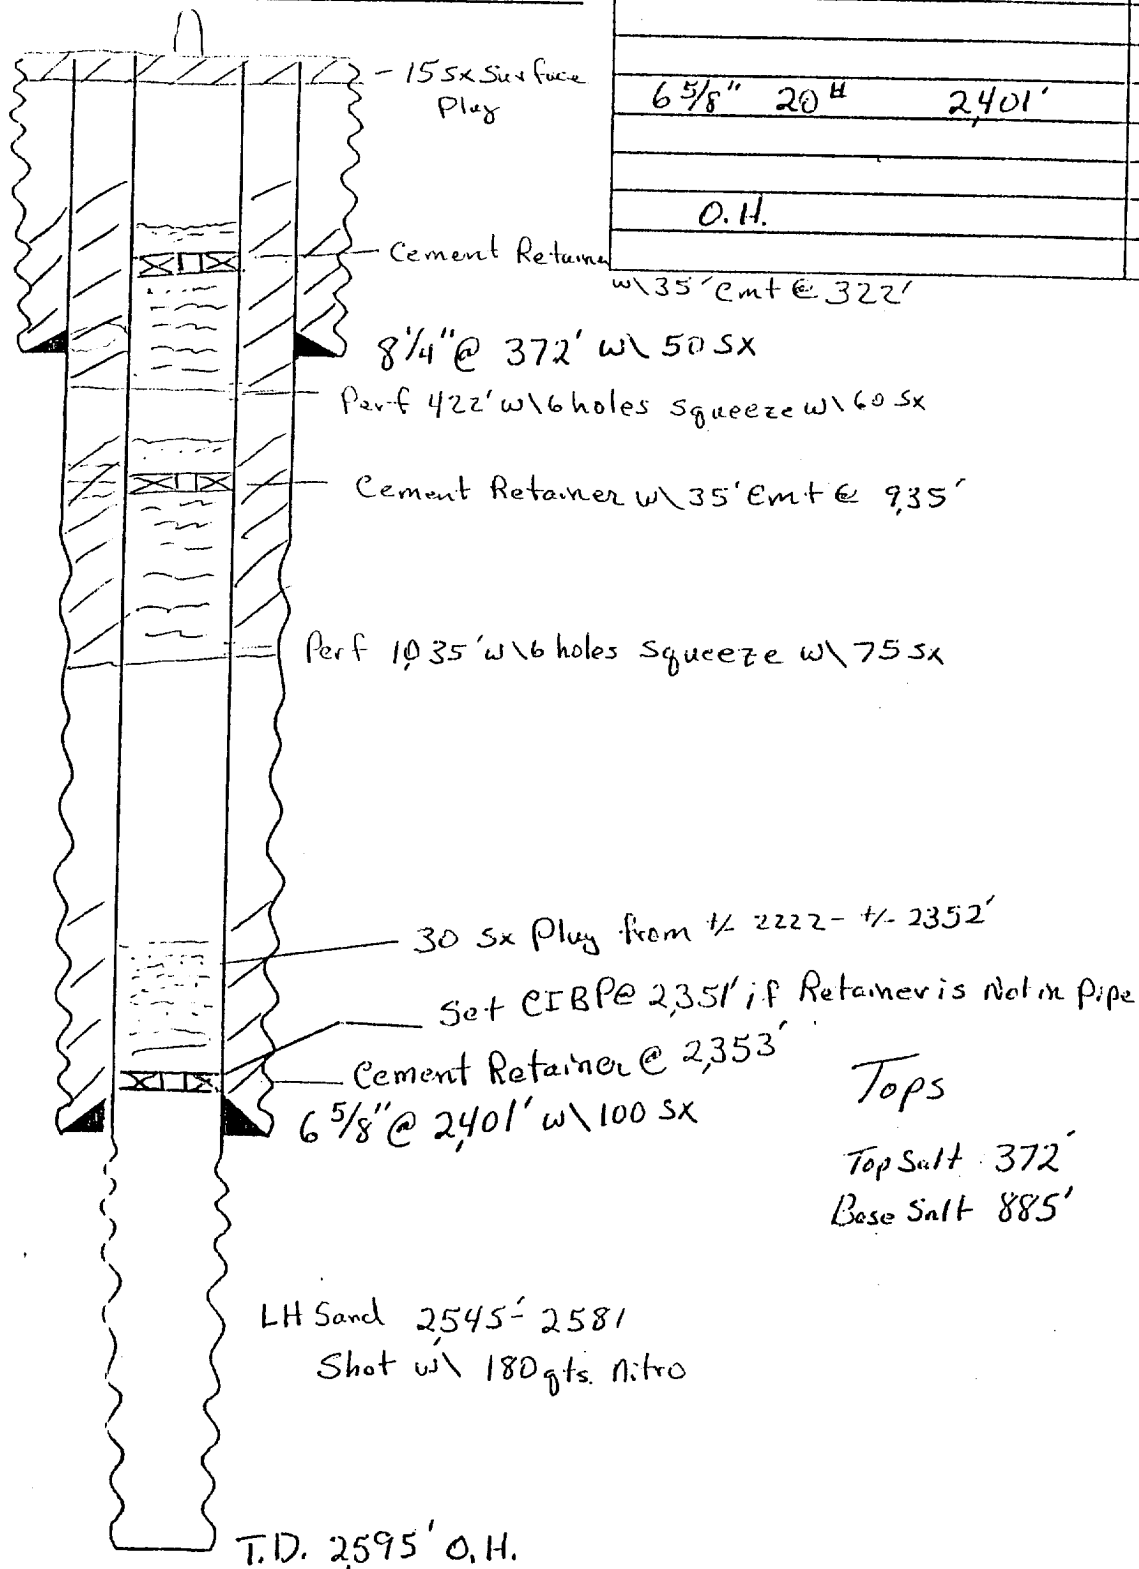 - 15 sx Surface
Plug
6 5/8" 20# 2,401'
O.H.
Cement Retainer
w\ 35' Cmt @ 322'
8 1/4" @ 372' w\ 50 sx
Perf 422' w\ 6 holes squeeze w\ 60 sx
Cement Retainer w\ 35' Cmt @ 935'
Perf 1,035' w\ 6 holes Squeeze w\ 75 sx
30 sx Plug from +/- 2222 - +/- 2352'
Set CIBP @ 2,351' if Retainer is Not in Pipe
Cement Retainer @ 2,353'
6 5/8" @ 2,401' w\ 100 sx
Tops
Top Salt 372'
Base Salt 885'
LH Sand 2,545' - 2581
Shot w\ 180 qts. Nitro
T.D. 2,595' O.H.